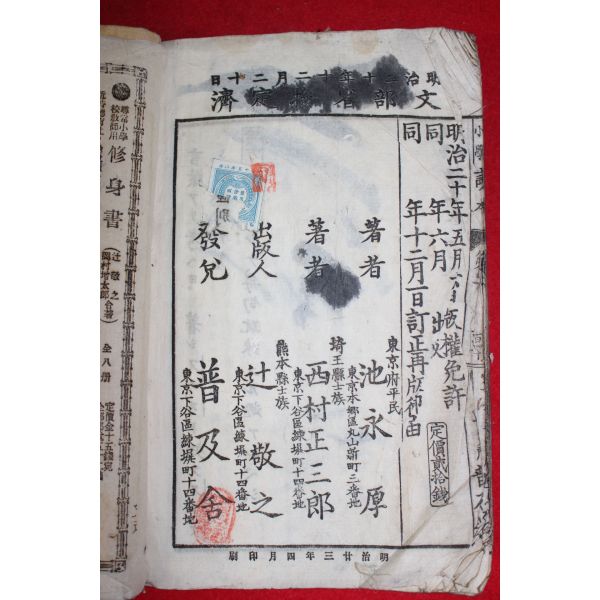 明治二十年十二月二十日
文部省檢定濟
明治二十年五月六日版權免許
同年六月出版
同年十二月一日訂正再版御届
定價貳拾錢
著者
東京府平民
池永厚
東京本郷區丸山新町三番地
著者
埼玉縣士族
西村正三郎
東京下谷區練塀町十四番地
出版人
熊本縣士族
辻敬之
東京下谷區練塀町十四番地
發兌
普及舍
東京下谷區練塀町十四番地
明治廿三年四月印刷
尋常小學
校教師用
修身書
辻敬之
岡村増太郎合著
全八册